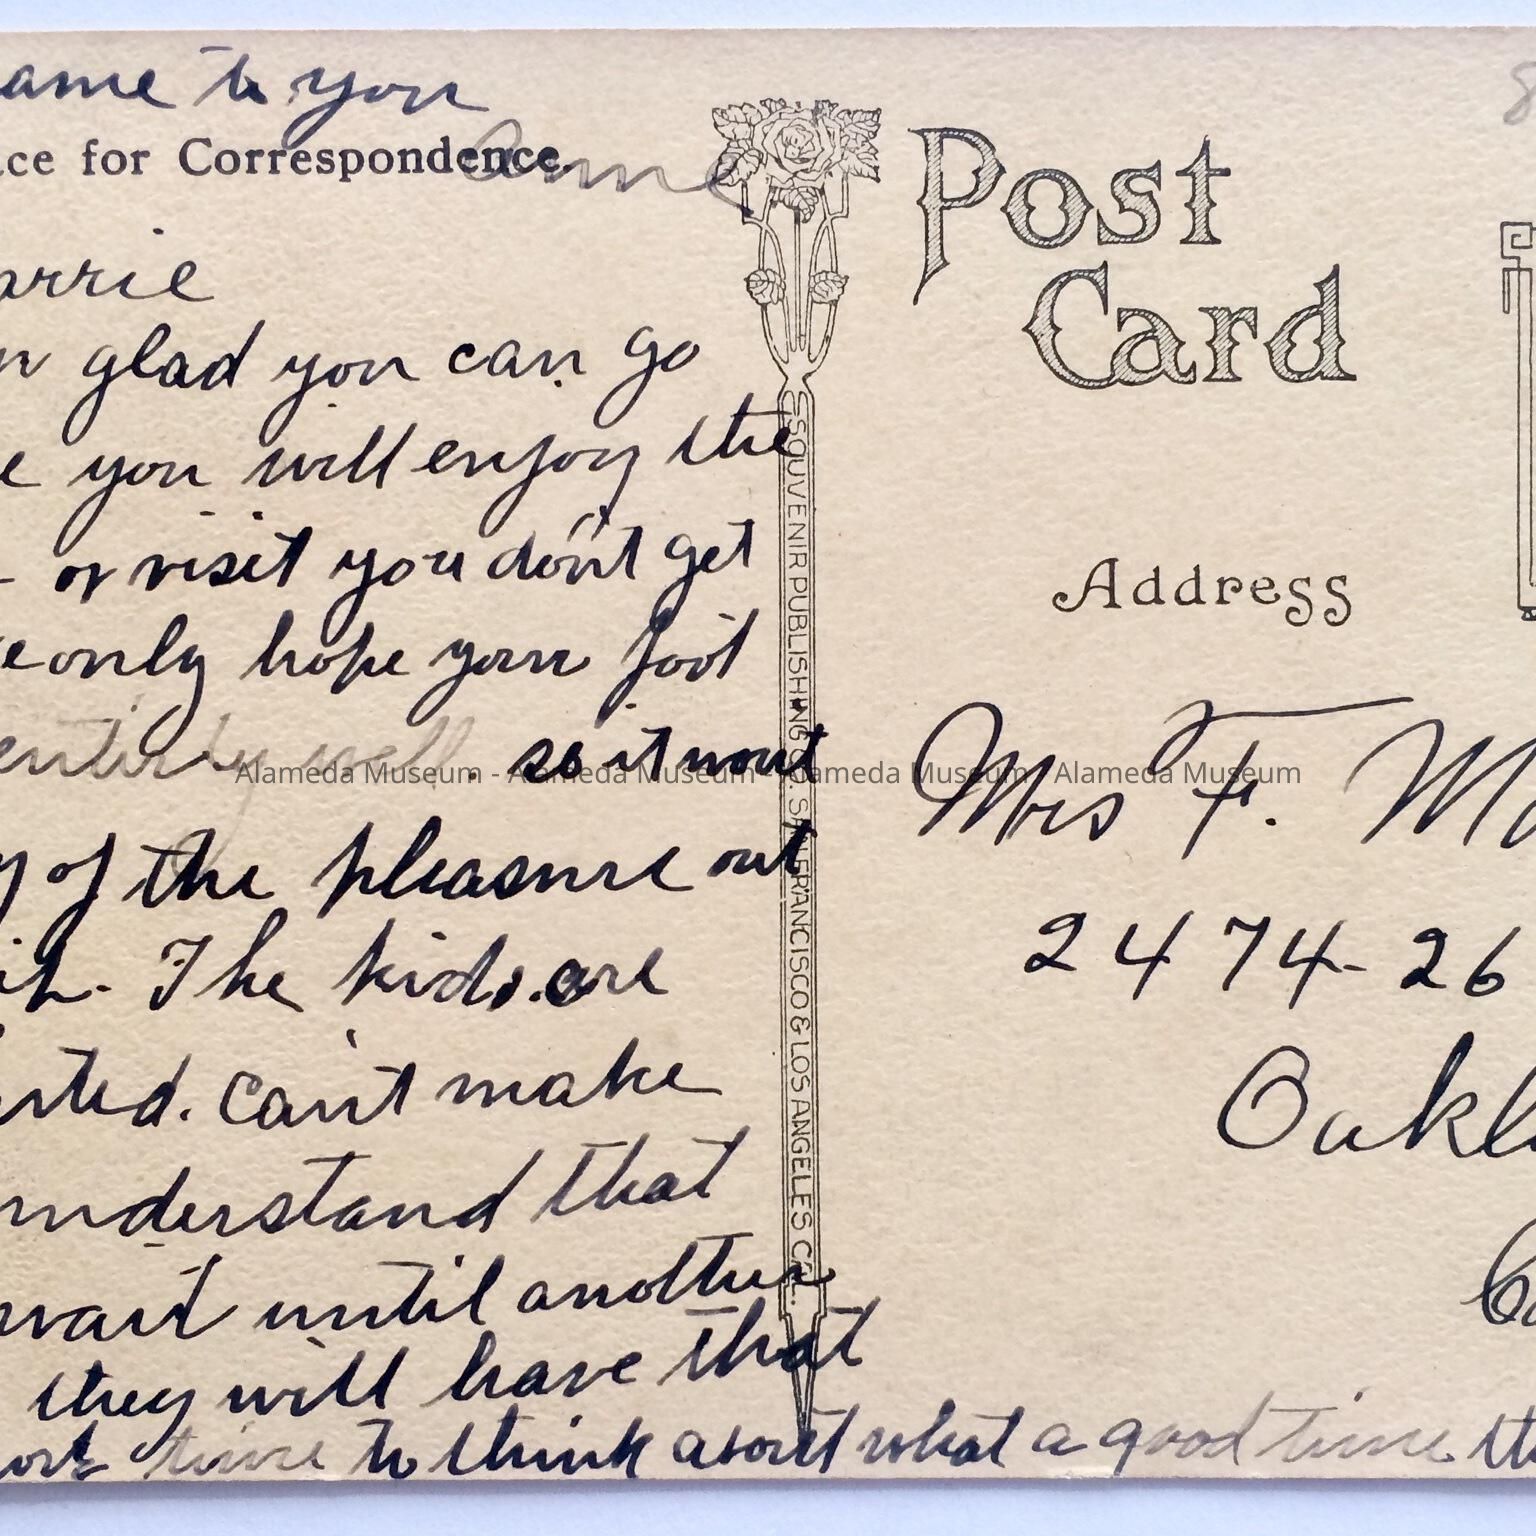 ame to you
Anne
ce for Correspondence.
arrie
glad you can go
e you will enjoy the
- or visit you don't get
e only hope your foot
entirely well. so it wont
y of the pleasure out
it. The kids are
rted. Can't make
understand that
wait until another
they will have that
ork time to think about what a good time th
Post
Card
Address
Mrs F. M
2474-26
Oakl
Ca
SOUVENIR PUBLISHING CO. SAN FRANCISCO & LOS ANGELES CAL.
Alameda Museum - Alameda Museum - Alameda Museum - Alameda Museum